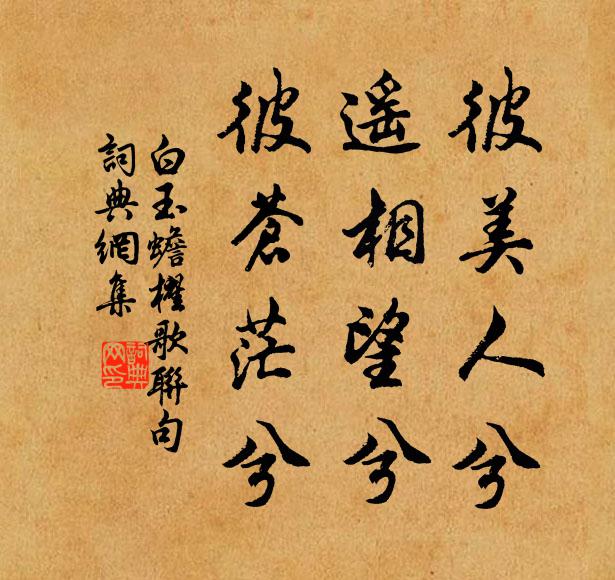 彼美人兮
遥相望兮
彼蒼茫兮
白玉蟾櫂歌聯句
詞典網集
詞典
网印